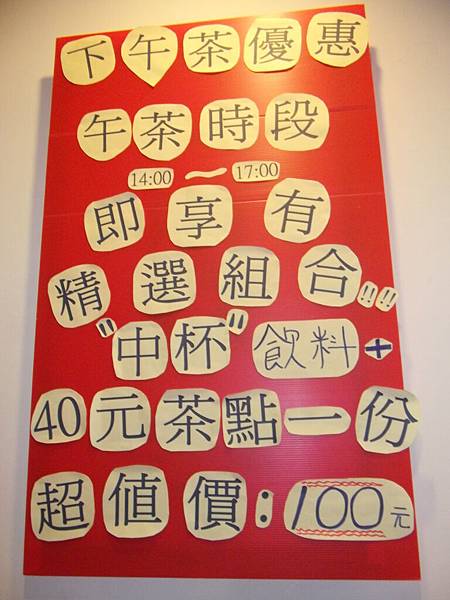 下午茶優惠
午茶時段
14:00～17:00
即享有
精選組合!!
"中杯"飲料+
40元茶點一份
超值價:100元